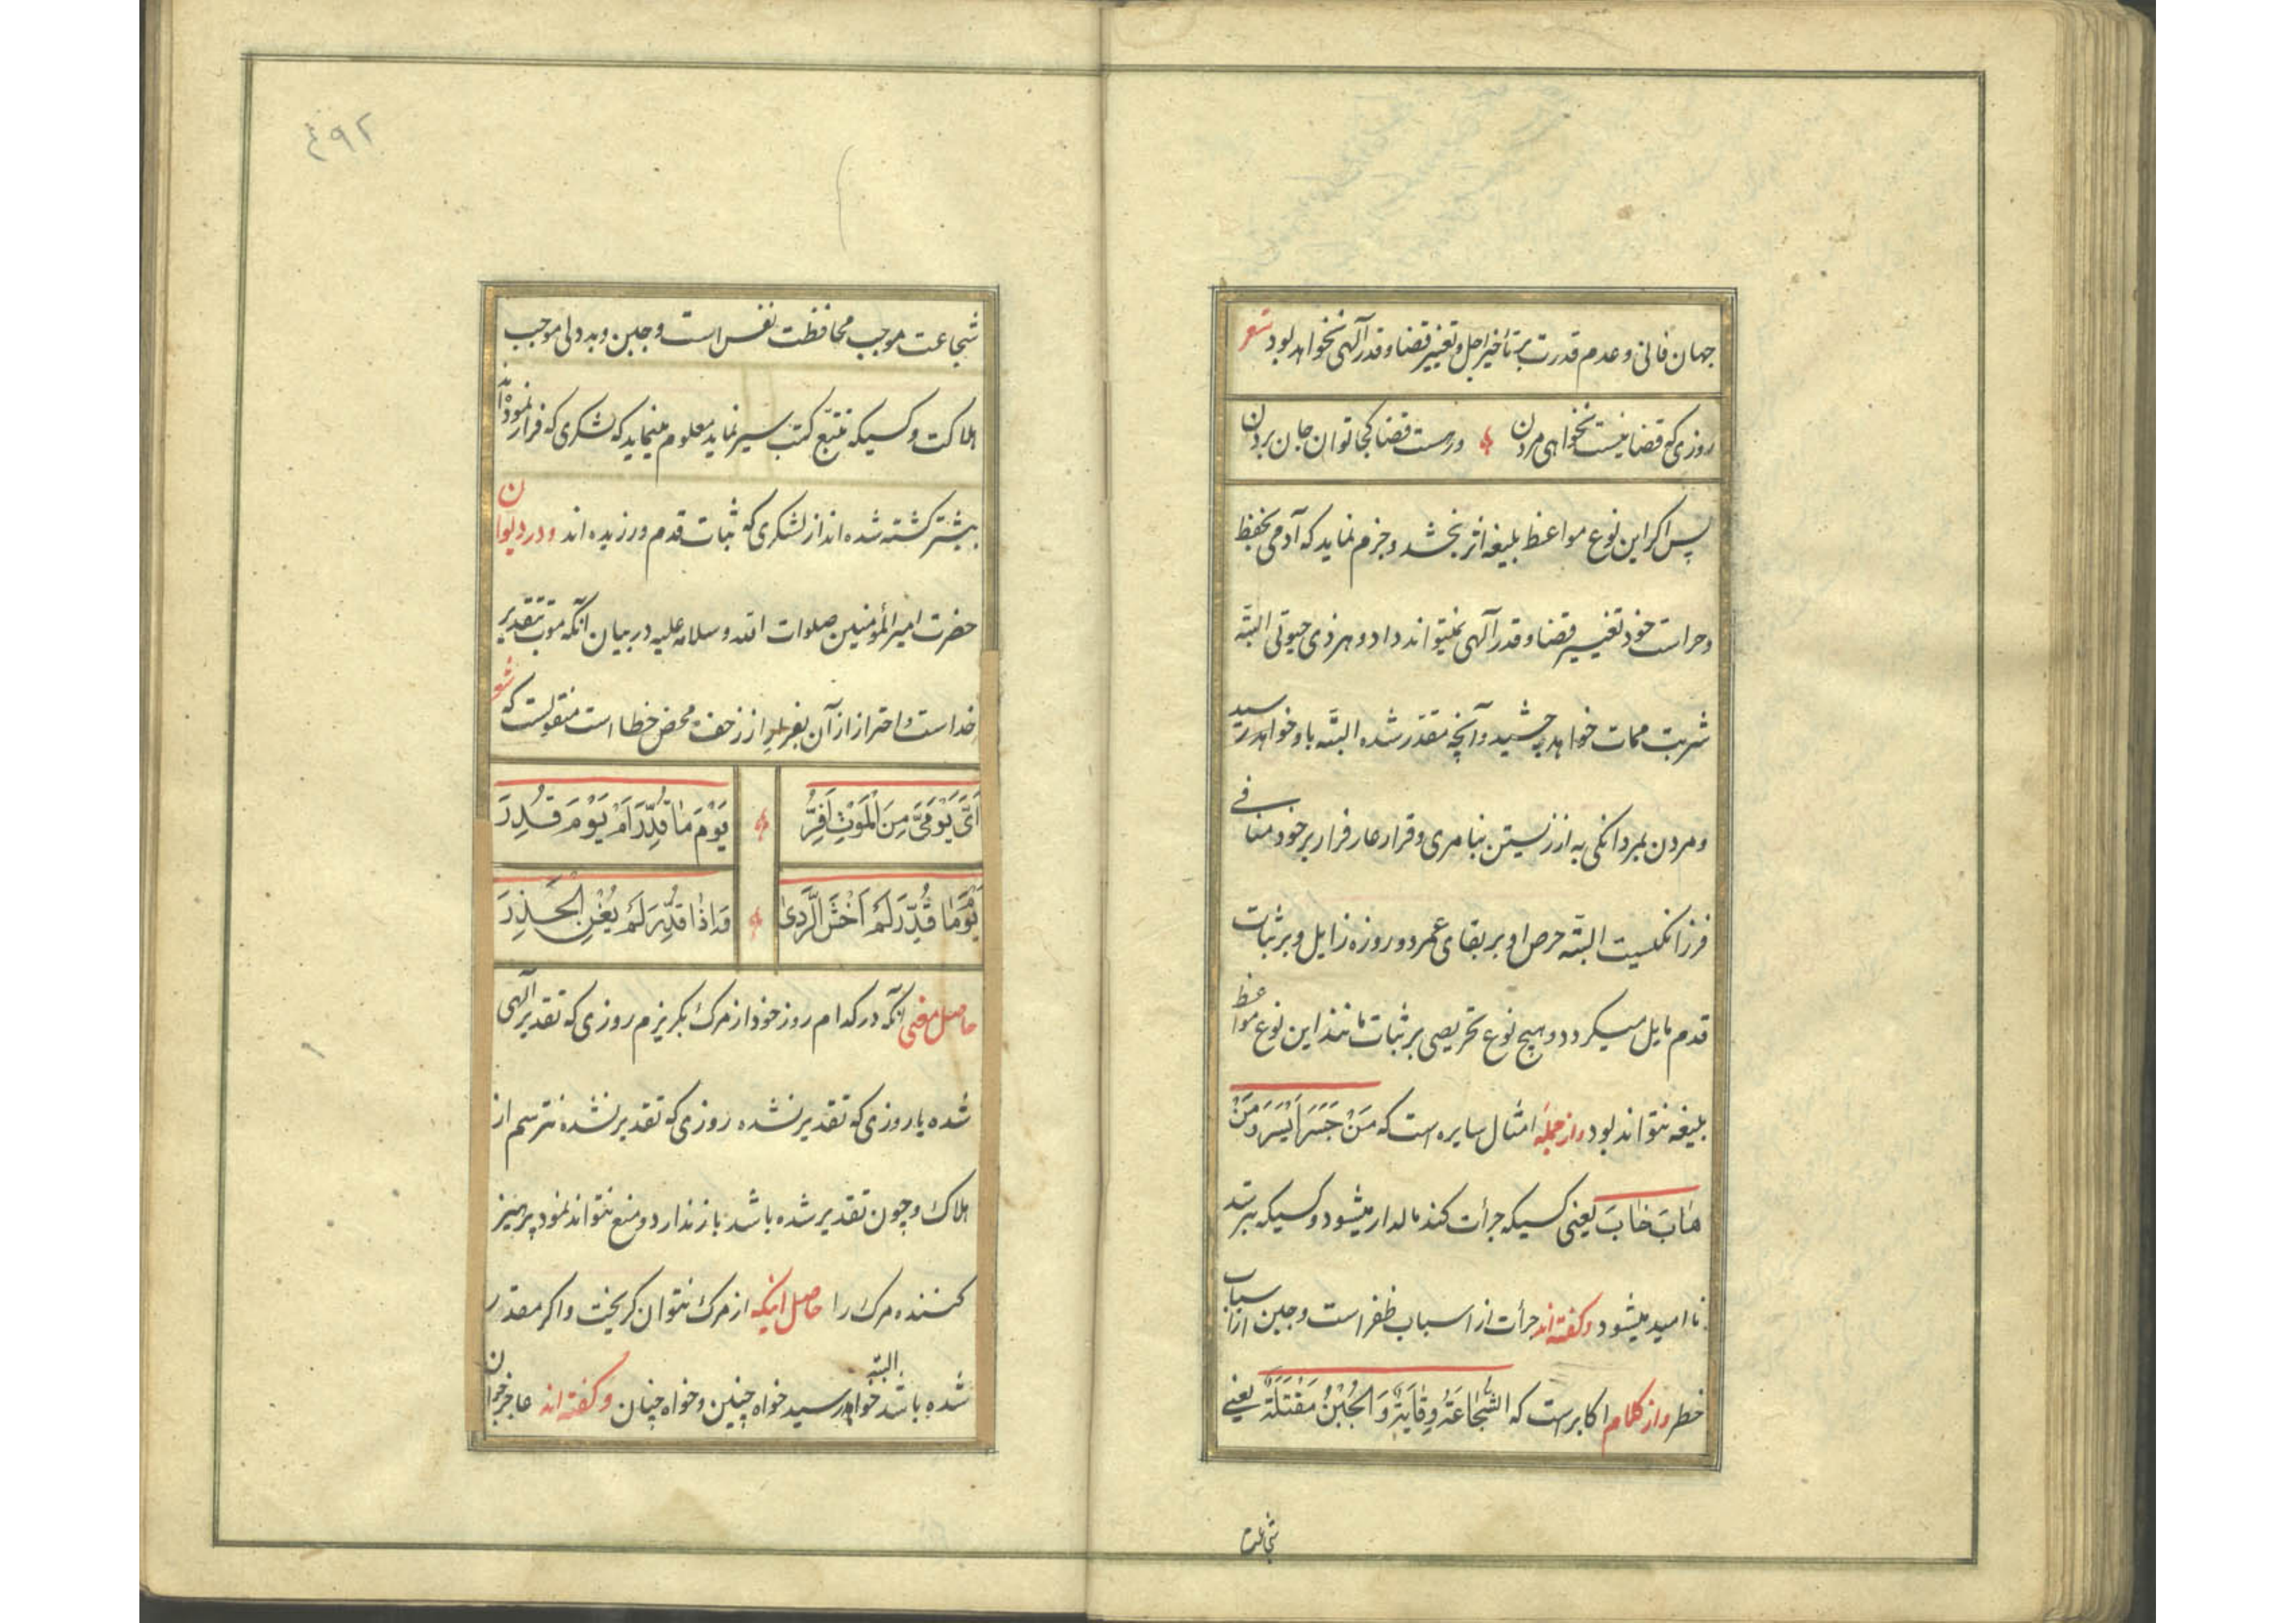 جهان فانی و عدم قدرت بر تأخیر اجل و تغییر قضا و قدر آلهی نخواهد بود شعر
روزی که قضا نیست نخواهی مردن ورهست قضا کجا توان جان بردن
پس اکر این نوع مواعظ بلیغه اثر بخشد و جزم نماید که آدمی بحفظ
و حراست خود تغییر قضا و قدر آلهی نمیتواند داد و هر ذی حیوتی البتّه
شربت ممات خواهد چشید و آنچه مقدّر شده البتّه باو خواهد رسید
و مردن بمردانکی به از زیستن بنامردی و قرار عار فرار بر خود منافی
فرزانکیست البتّه حرص او بر بقای عمر دو روزه زایل و بر ثبات
قدم مایل میکردد و هیچ نوع تحریصی بر ثبات مانند این نوع مواعظ
بلیغه نتواند بود و از جمله امثال سایره است که مَنْ جَسَرَ اَیْسَرَ وَ مَنْ
هَابَ خَابَ یعنی کسیکه جرأت کند مالدار میشود و کسیکه بترسد
نا امید میشود و کفته اند جرأت از اسباب ظفر است و جبن از اسباب
خطر و از کلام اکابر است که الشَّجَاعَةُ وِقَایَةٌ وَ الْجُبْنُ مَقْتَلَةٌ یعنی
شجاعت
٤٩٢
شجاعت موجب محافظت نفس است و جبن و بددلی موجب
هلاکت و کسیکه تتبّع کتب سیر نماید معلوم مینماید که لشکری که فرار نموده اند
بیشتر کشته شده اند از لشکری که ثبات قدم ورزیده اند و در دیوان
حضرت امیر المؤمنین صلوات الله و سلامه علیه در بیان آنکه موت بتقدیر
خداست و احتراز از آن بفرار از زحف محض خطا است منقولست که شعر
اَیَّ یَوْمَیَّ مِنَ الْمَوْتِ اَفِرُّ یَوْمَ مَا قُدِّرَ اَمْ یَوْمَ قُدِرَ
یَوْمَ مَا قُدِّرَ لَمْ اَخْشَ الرَّدیٰ وَاِذَا قُدِّرَ لَمْ یُغْنِ الْحَذِرَ
حاصل معنی آنکه در کدام روز خود از مرک بکریزم روزی که تقدیر آلهی
شده یا روزی که تقدیر نشده روزی که تقدیر نشده نترسم از
هلاک و چون تقدیر شده باشد باز ندارد و منع نتواند نمود پرهیز
کننده مرک را حاصل اینکه از مرک نتوان کریخت و اکر مقدر
شده باشد البته خواهد رسید خواه چنین و خواه چنان و کفته اند